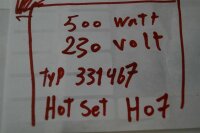 500 watt
230 volt
typ 331467
Hot Set H07